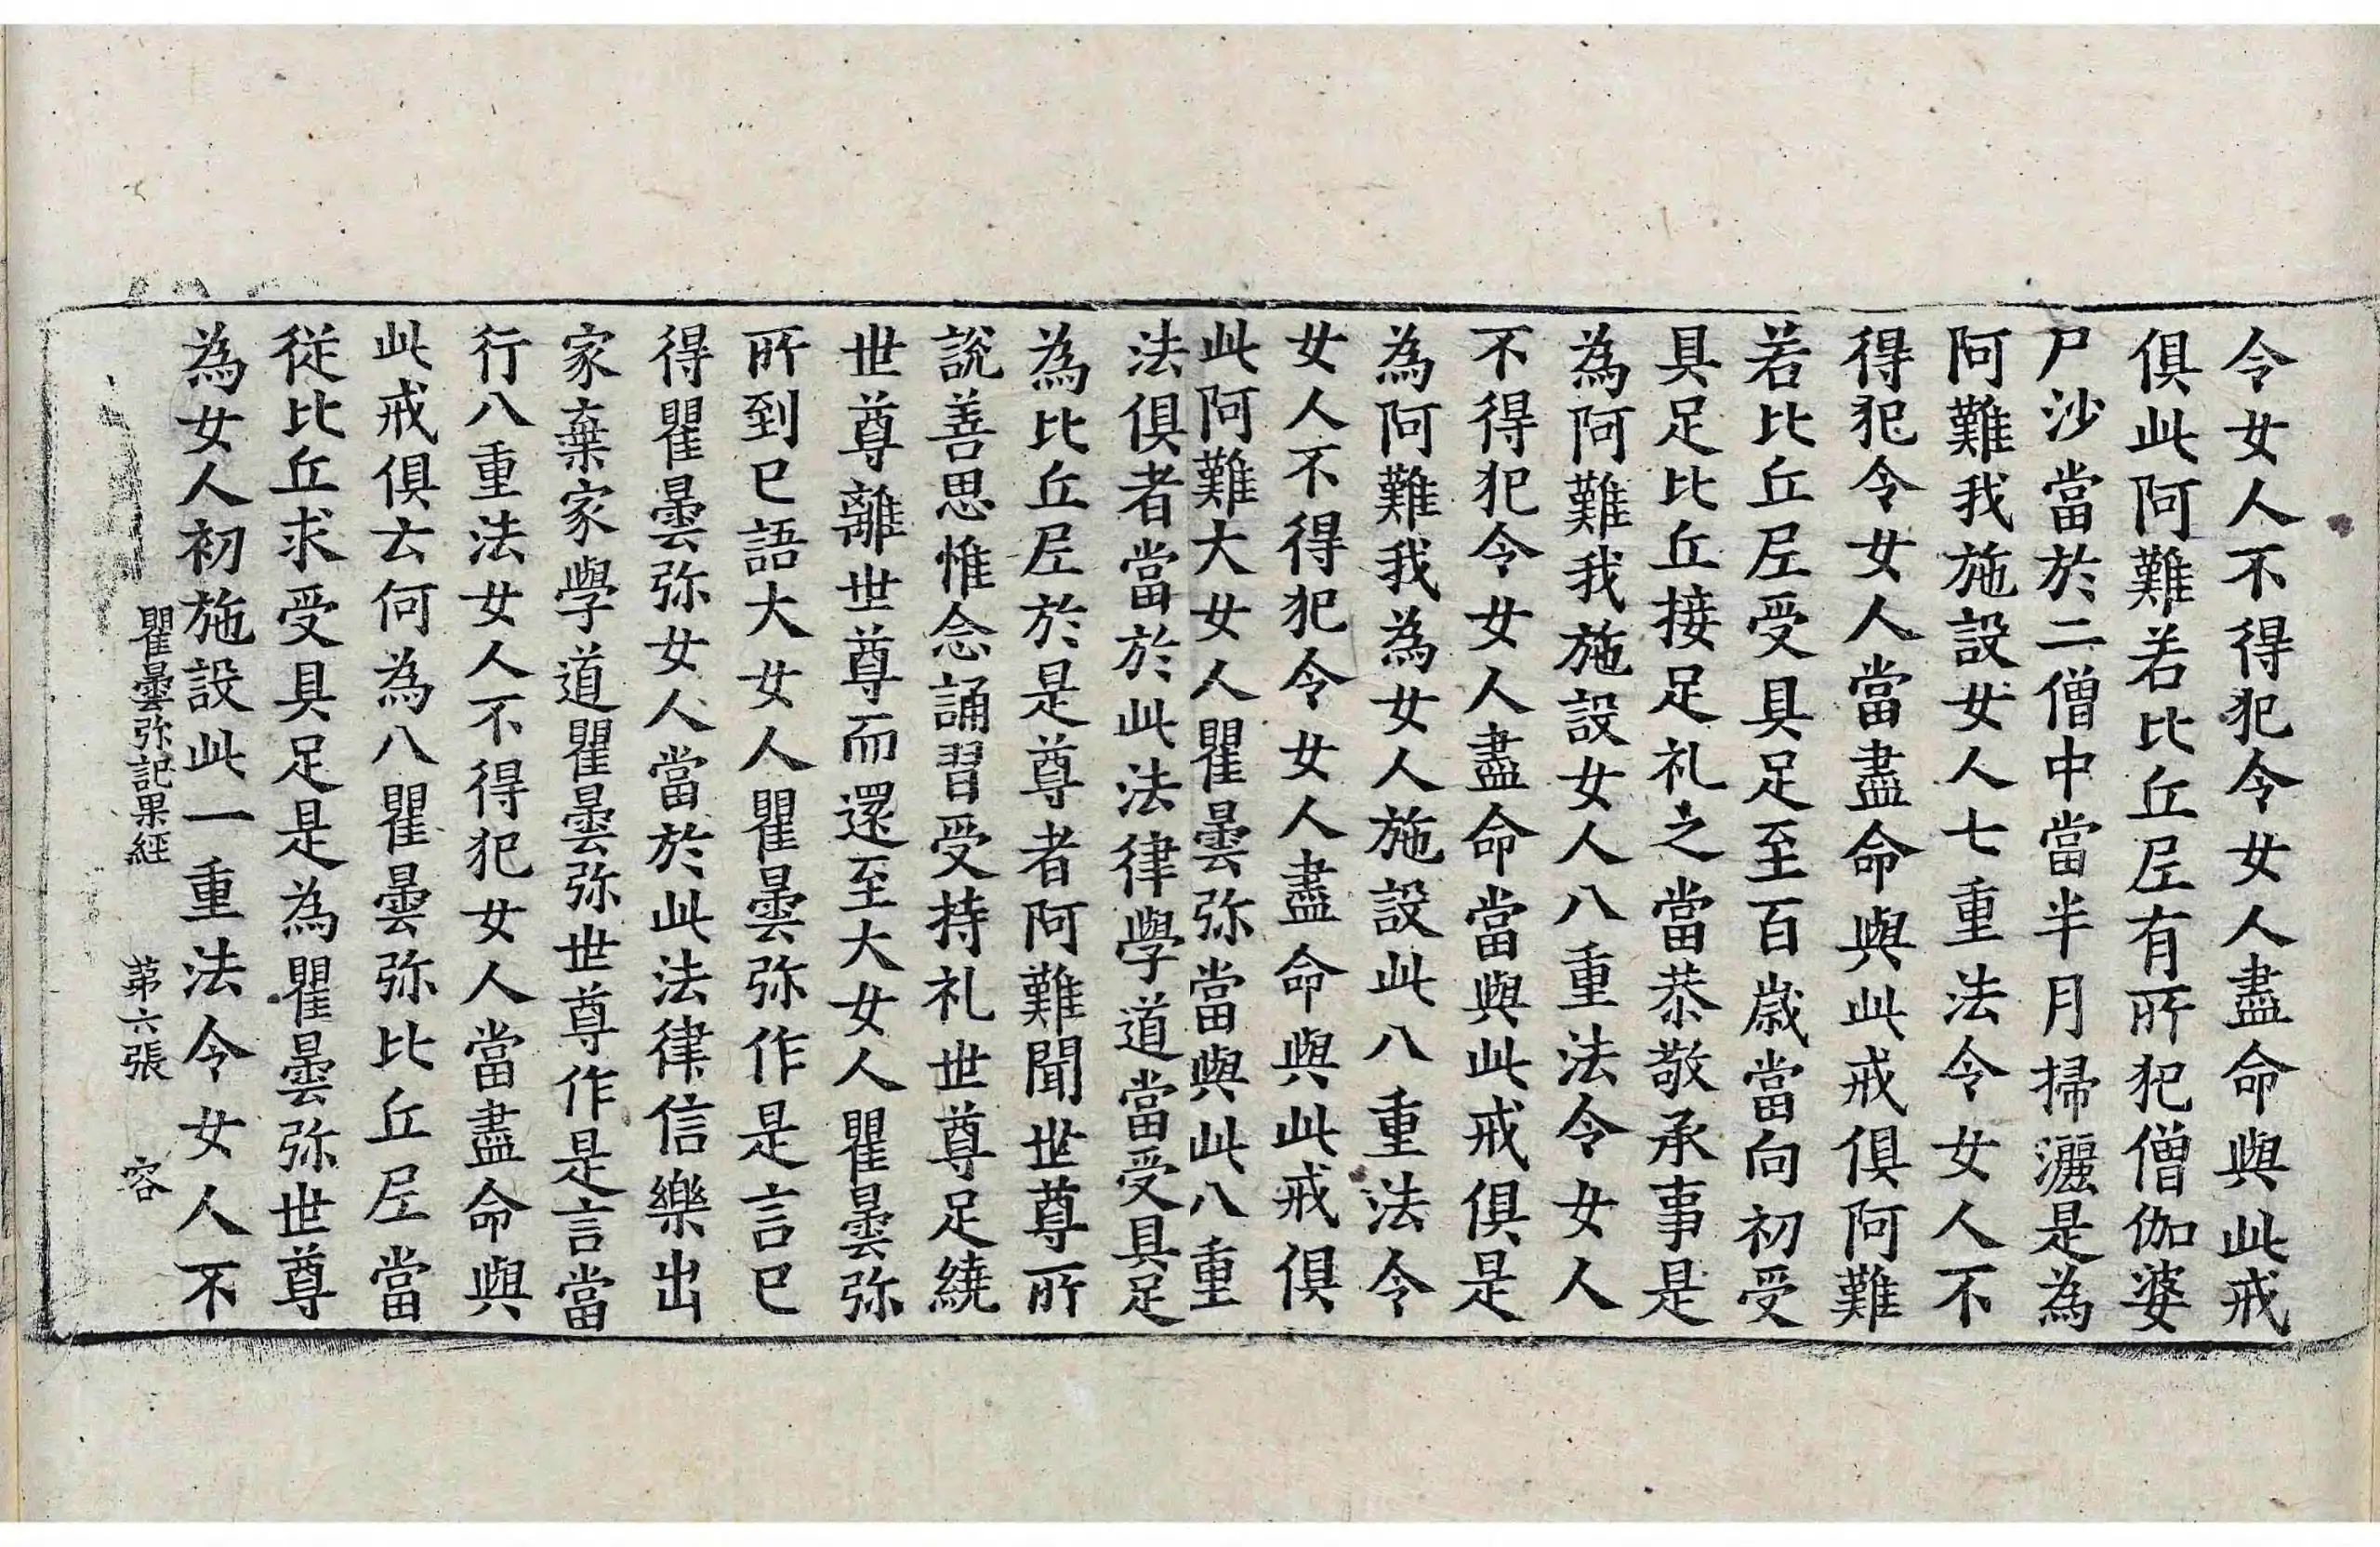 令女人不得犯令女人盡命與此戒
俱此阿難若比丘𡰱有所犯僧伽婆
尸沙當於二僧中當半月掃灑是為
阿難我施設女人七重法令女人不
得犯令女人當盡命與此戒俱阿難
若比丘𡰱受具足至百歲當向初受
具足比丘接足礼之當恭敬承事是
為阿難我施設女人八重法令女人
不得犯令女人盡命當與此戒俱是
為阿難我為女人施設此八重法令
女人不得犯令女人盡命與此戒俱
此阿難大女人瞿曇弥當與此八重
法俱者當於此法律學道當受具足
為比丘𡰱於是尊者阿難聞世尊所
說善思惟念誦習受持礼世尊足繞
世尊離世尊而還至大女人瞿曇弥
所到已語大女人瞿曇弥作是言已
得瞿曇弥女人當於此法律信樂出
家棄家學道瞿曇弥世尊作是言當
行八重法女人不得犯女人當盡命與
此戒俱云何為八瞿曇弥比丘𡰱當
從比丘求受具足是為瞿曇弥世尊
為女人初施設此一重法令女人不
瞿曇弥記果経 第六張 容